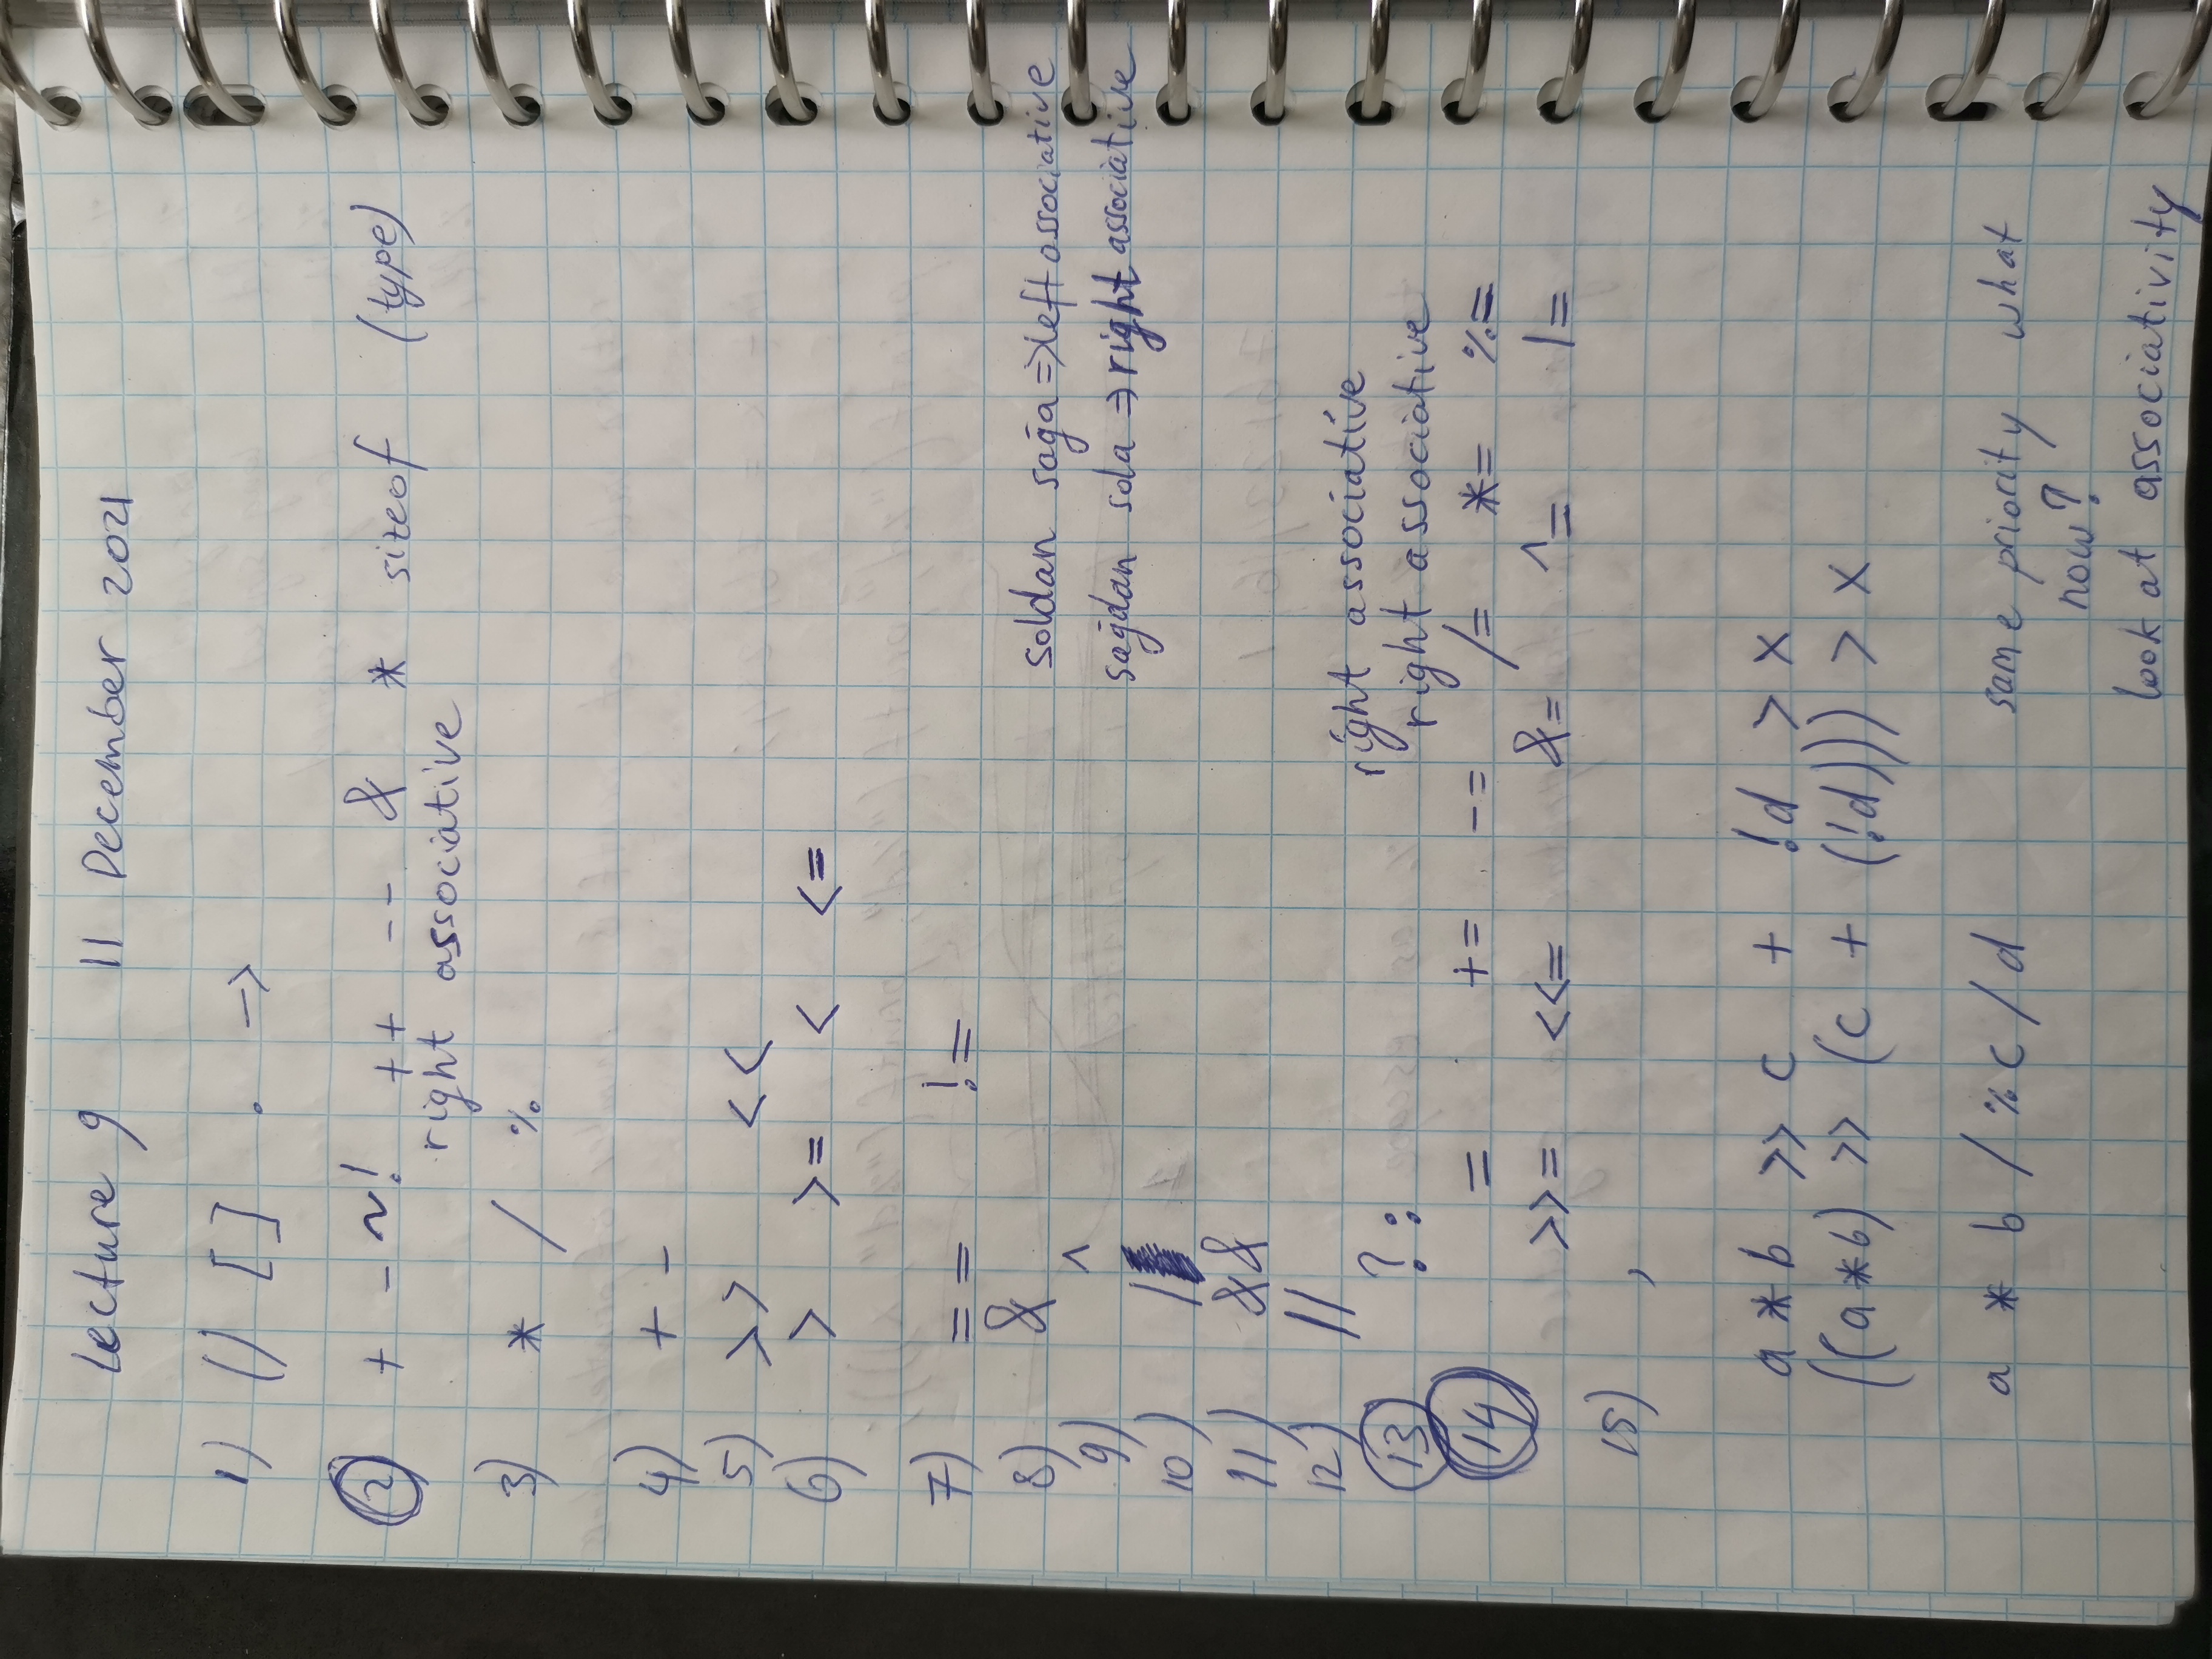 Lecture 9 11 December 2021
1) () [] . ->
2 + - ~ ! ++ -- & * sizeof (type)
right associative
3) * / %
4) + -
5) >> <<
6) > >= < <=
7) == !=
8) & soldan sağa => left associative
9) ^
sağdan sola => right associative
10) |
11) &&
12) ||
right associative
13 ? :
right associative
14 = += -= /= *= %=
>>= <<= &= ^= |=
15) ,
a * b >> c + !d > x
((a*b) >> (c + (!d))) > x
a * b / % c / d same priority what
now?
look at associativity